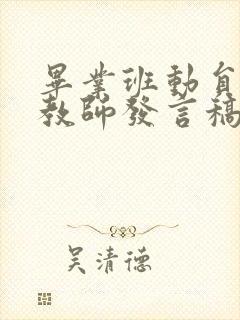 畢業班動員
教師發言稿
吳清德